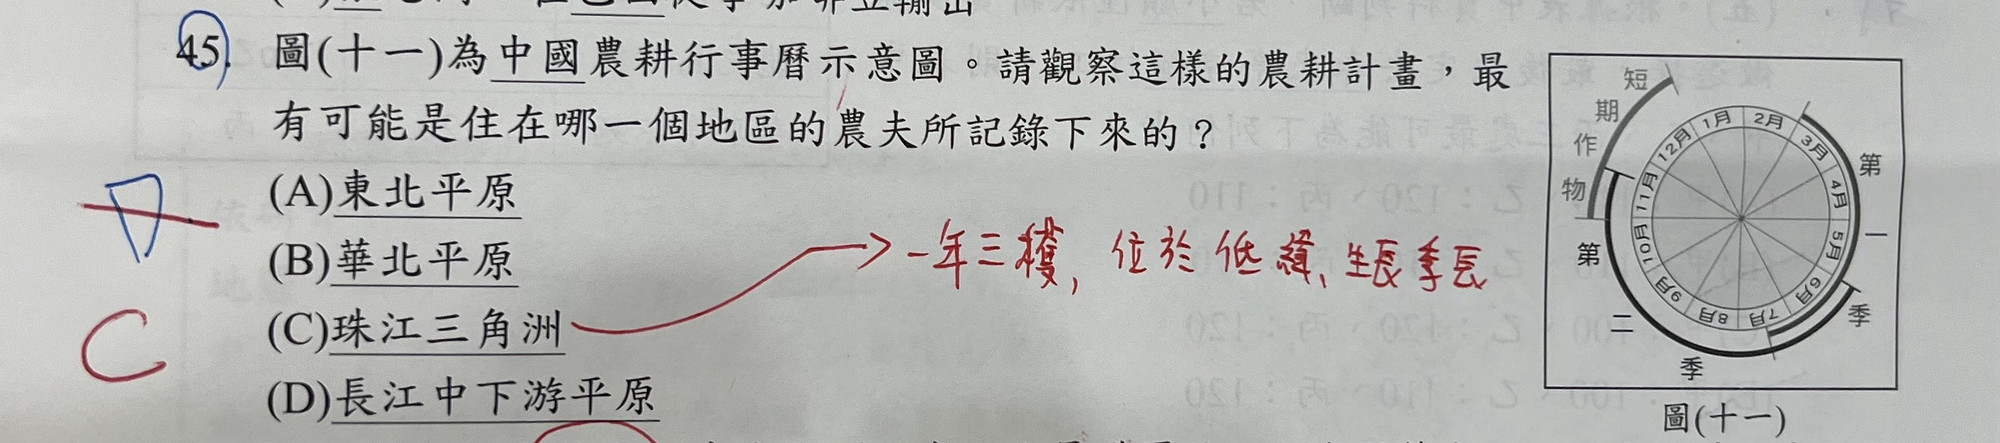 45. 圖(十一)為中國農耕行事曆示意圖。請觀察這樣的農耕計畫，最
有可能是住在哪一個地區的農夫所記錄下來的？
D
(A)東北平原
(B)華北平原
C
(C)珠江三角洲
→一年三穫，位於低緯、生長季長
(D)長江中下游平原
短期作物
第一季
第二季
1月
2月
3月
4月
5月
6月
7月
8月
9月
10月
11月
12月
圖(十一)